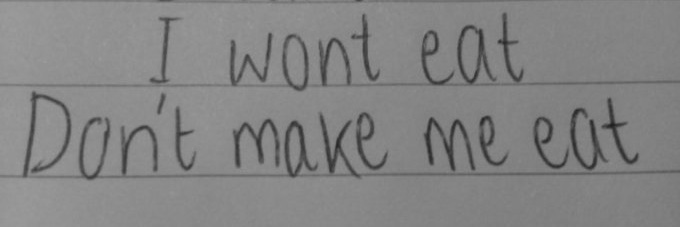 I wont eat
Don't make me eat